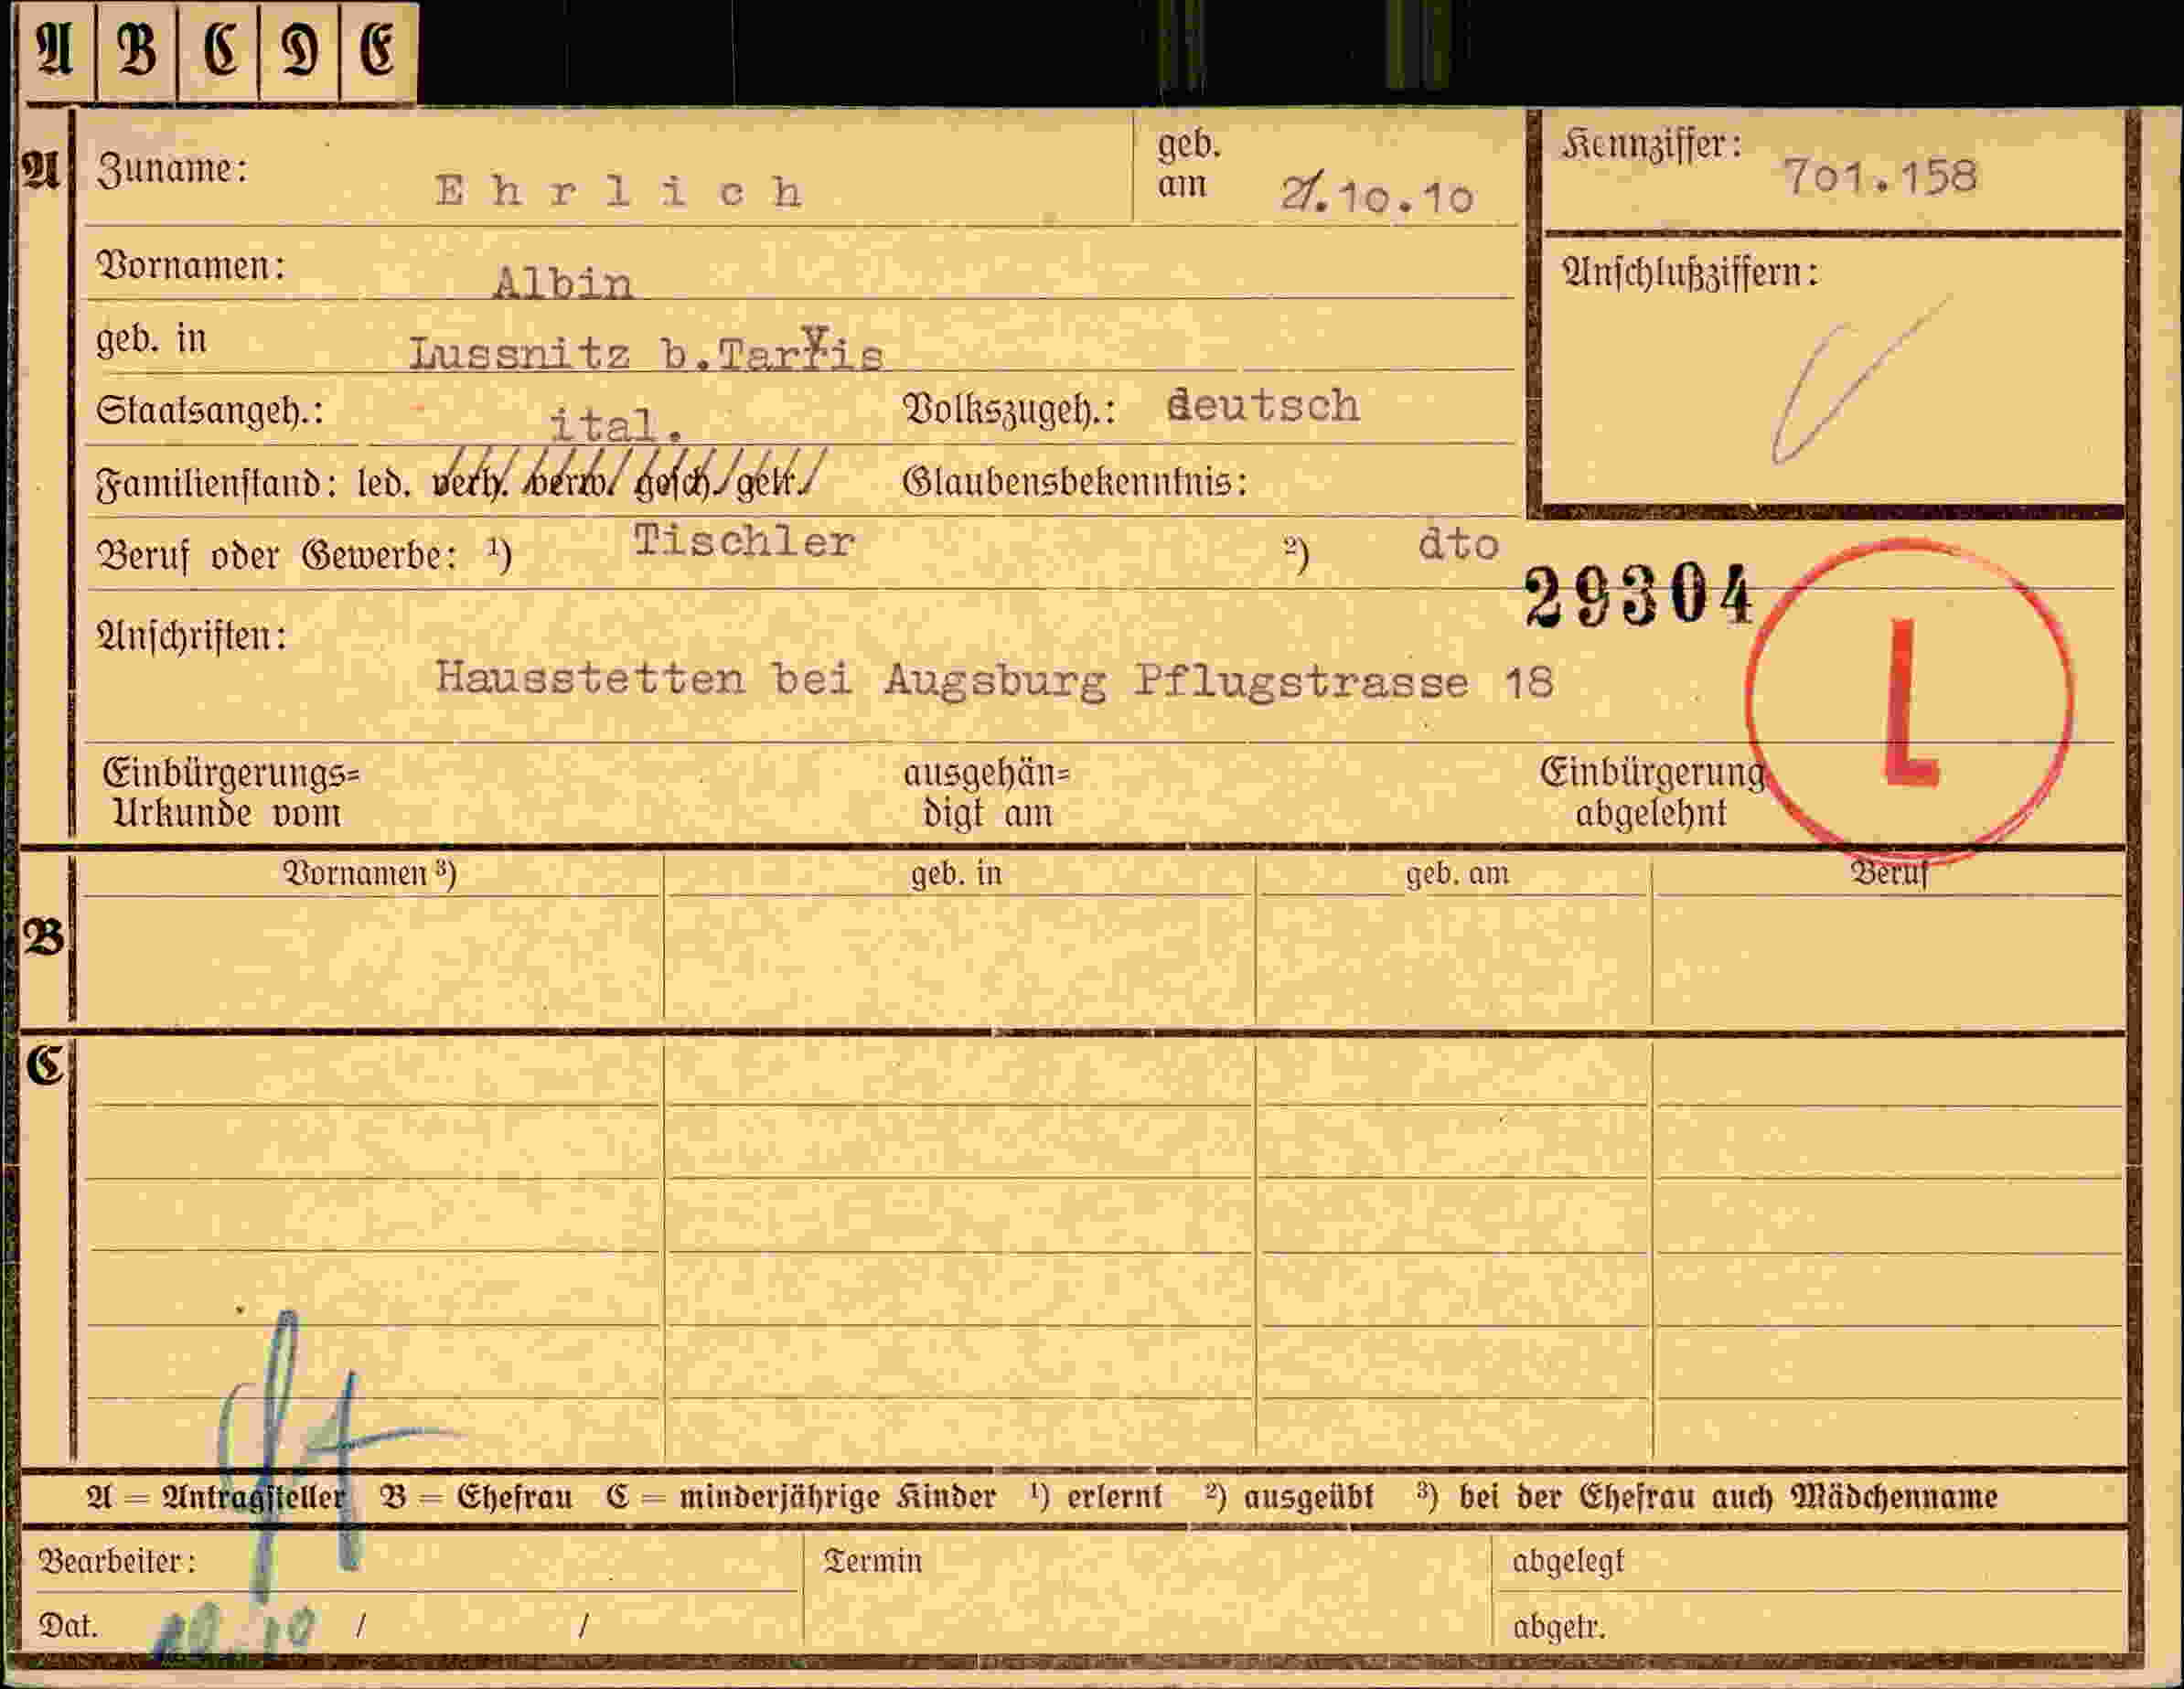 A B C D E
A Zuname: Ehrlich geb. am 21.10.10 Kennziffer: 701.158
Vornamen: Albin Anschlußziffern:
geb. in Lussnitz b.Tarvis
Staatsangeh.: ital. Volkszugeh.: deutsch
Familienstand: led. verh. verw. gesch. getr. Glaubensbekenntnis:
Beruf oder Gewerbe: ¹) Tischler ²) dto
29304
Anschriften: Hausstetten bei Augsburg Pflugstrasse 18
L
Einbürgerungs= ausgehän= Einbürgerung
Urkunde vom digt am abgelehnt
Vornamen ³) geb. in geb. am Beruf
B
C
A = Antragsteller B = Ehefrau C = minderjährige Kinder ¹) erlernt ²) ausgeübt ³) bei der Ehefrau auch Mädchenname
Bearbeiter: Termin abgelegt
Dat. / / abgetr.